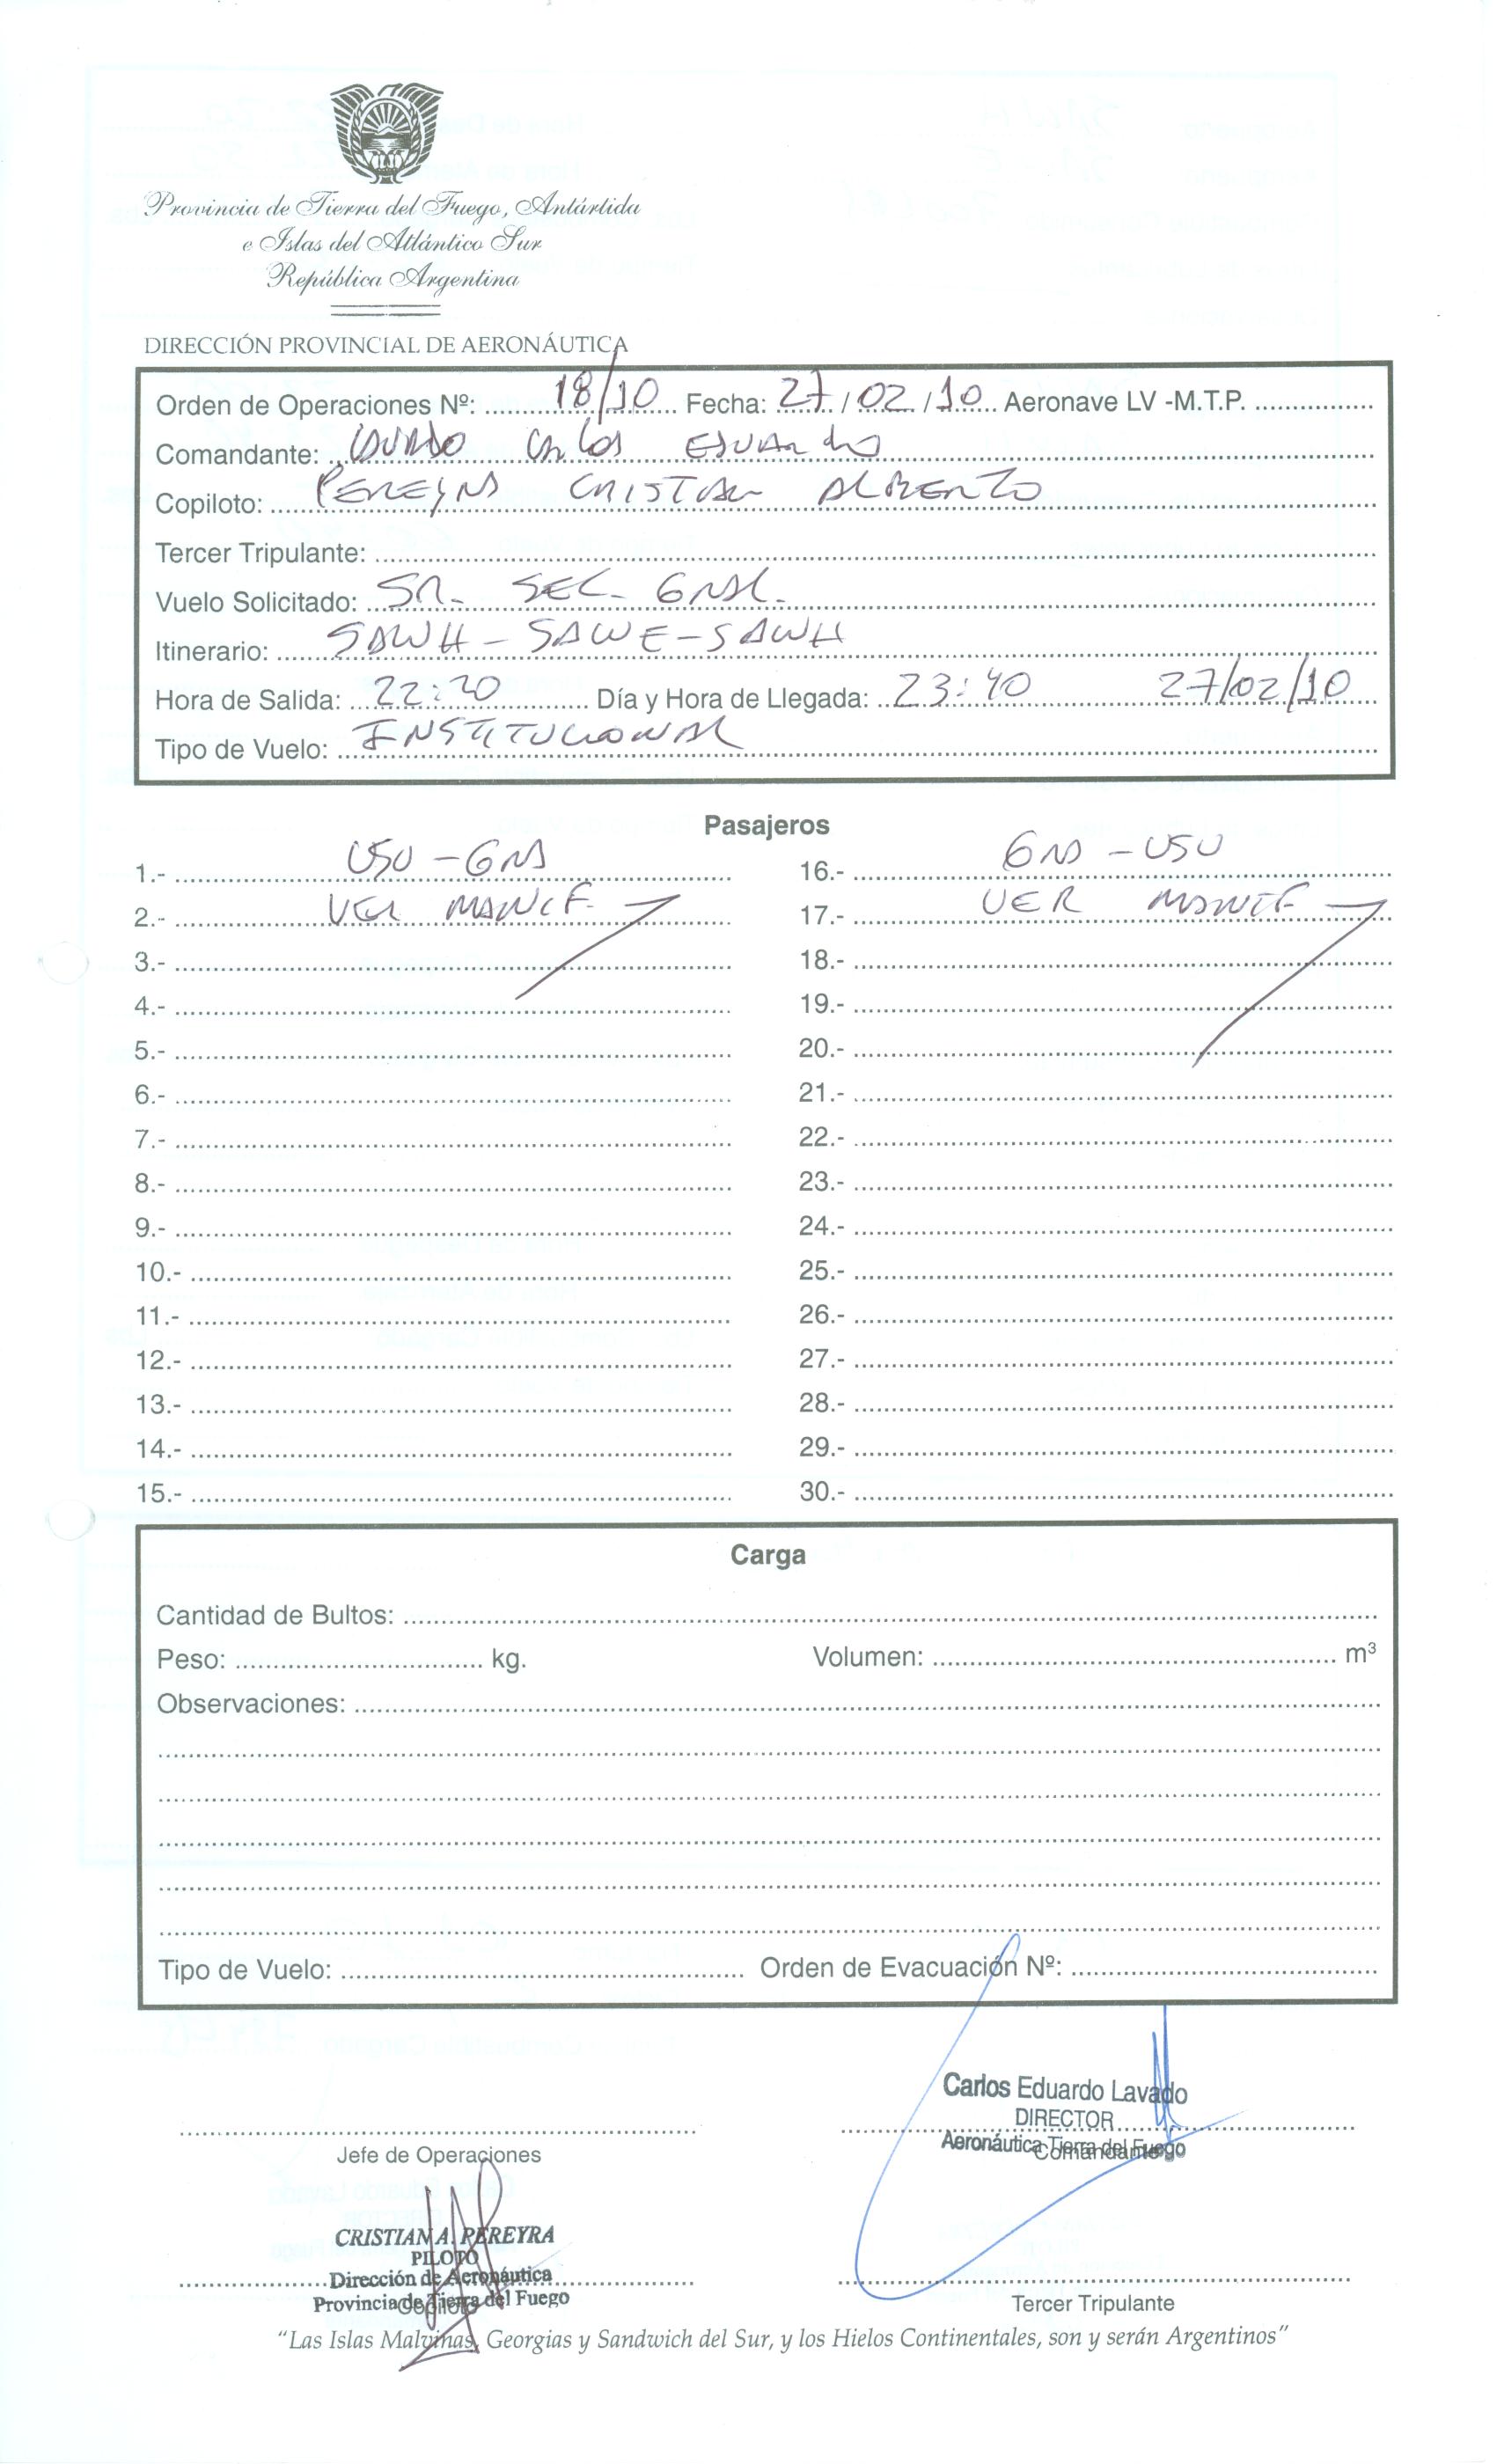 Provincia de Tierra del Fuego, Antártida
e Islas del Atlántico Sur
República Argentina
DIRECCIÓN PROVINCIAL DE AERONÁUTICA
Orden de Operaciones Nº: 18/10 Fecha: 27/02/10 Aeronave LV -M.T.P.
Comandante: LAVADO CARLOS EDUARDO
Copiloto: PEREYRA CRISTIAN ALBERTO
Tercer Tripulante:
Vuelo Solicitado: SR. SEC. GRAL.
Itinerario: SAWH - SAWE - SAWH
Hora de Salida: 22:20 Día y Hora de Llegada: 23:40 27/02/10
Tipo de Vuelo: INSTITUCIONAL
Pasajeros
1.- USU - GRA 16.- GRA - USU
2.- VER MANIF. 17.- VER MANIF
3.- 18.-
4.- 19.-
5.- 20.-
6.- 21.-
7.- 22.-
8.- 23.-
9.- 24.-
10.- 25.-
11.- 26.-
12.- 27.-
13.- 28.-
14.- 29.-
15.- 30.-
Carga
Cantidad de Bultos:
Peso: kg. Volumen: m³
Observaciones:
Tipo de Vuelo: Orden de Evacuación Nº:
Carlos Eduardo Lavado
DIRECTOR
Aeronáutica Tierra del Fuego
Jefe de Operaciones Comandante
CRISTIAN A. PEREYRA
PILOTO
Dirección de Aeronáutica
Provincia de Tierra del Fuego
Copiloto Tercer Tripulante
"Las Islas Malvinas, Georgias y Sandwich del Sur, y los Hielos Continentales, son y serán Argentinos"